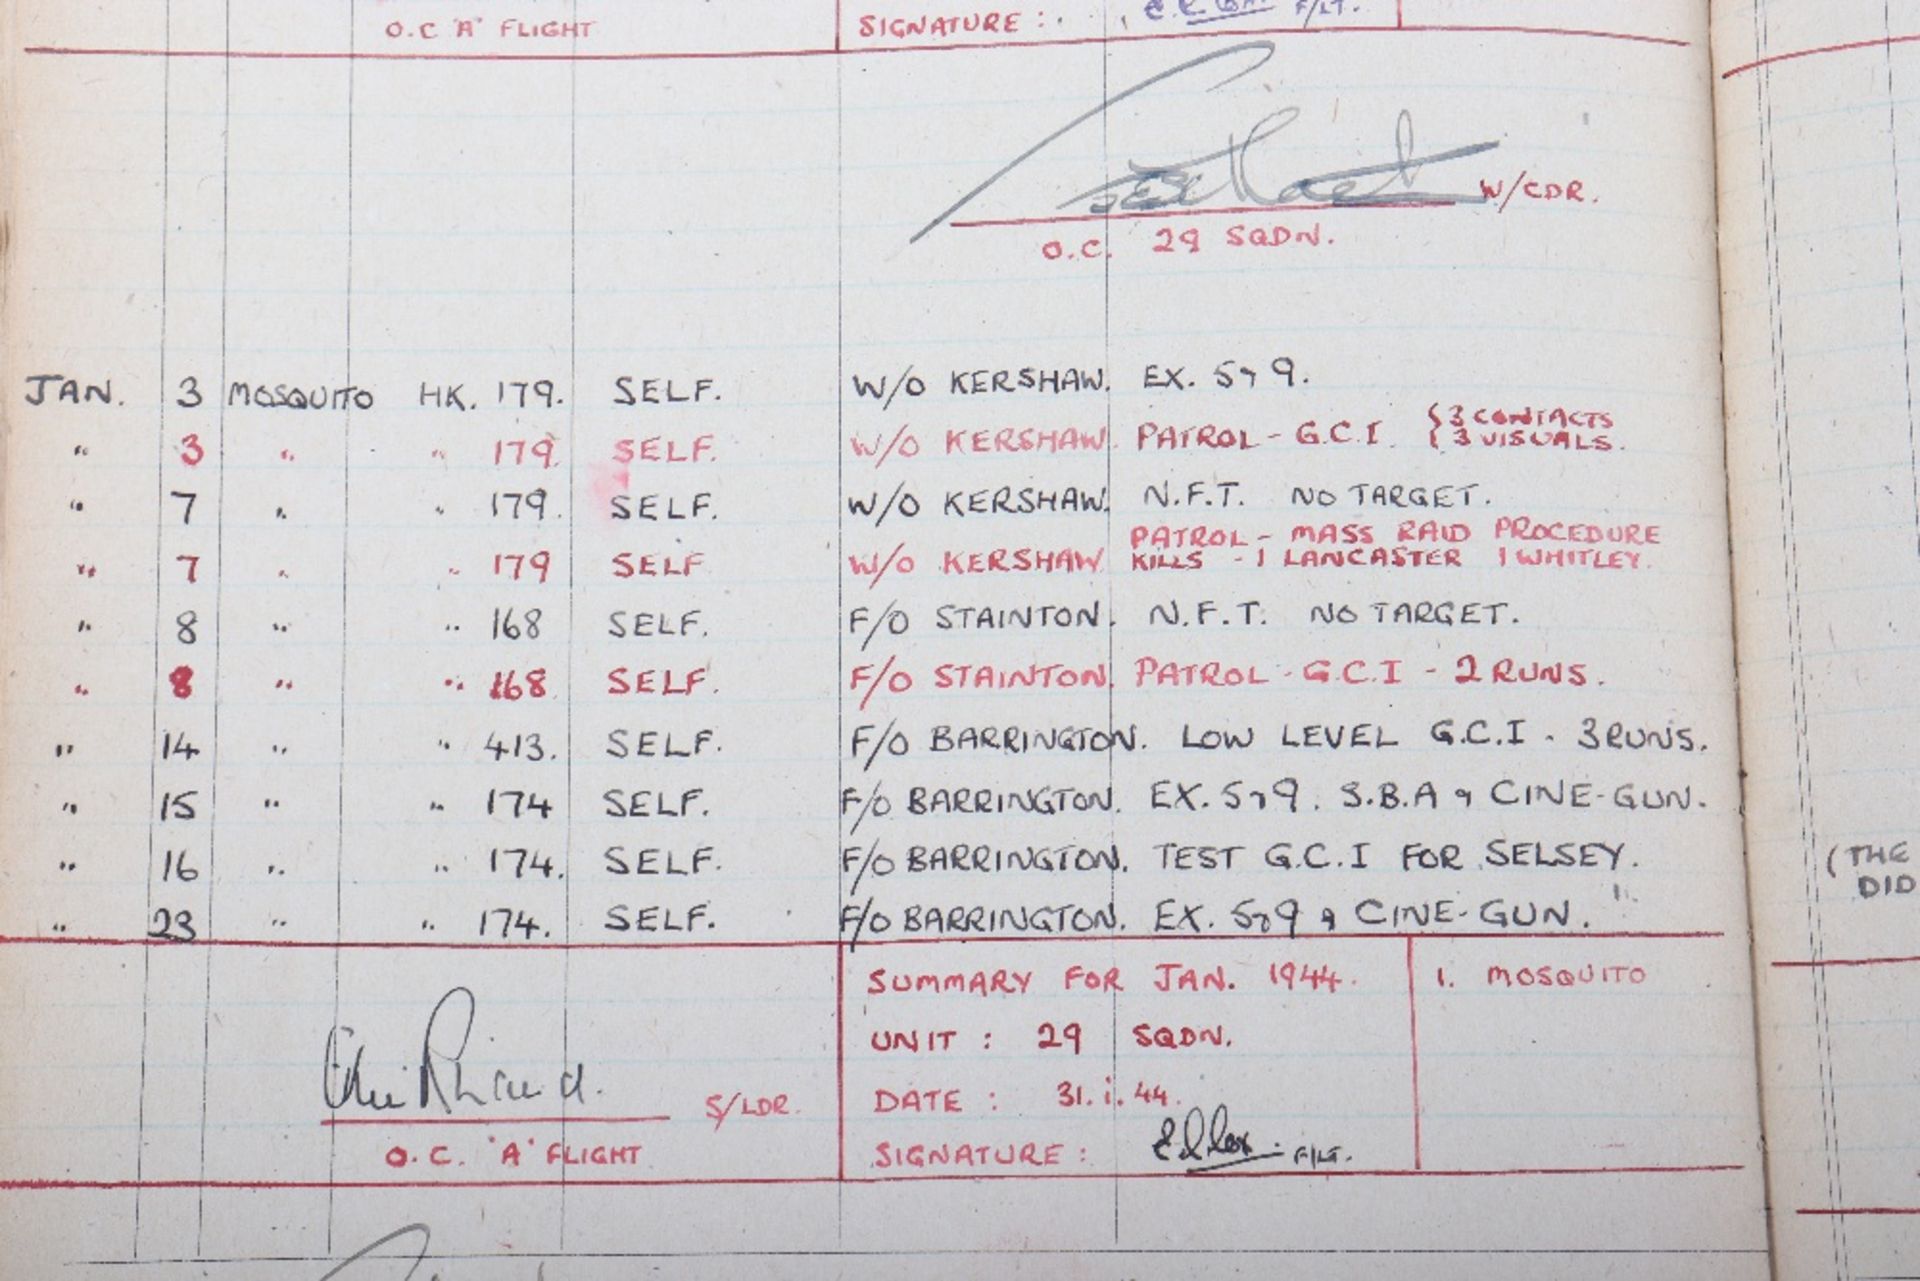 O.C 'A' FLIGHT SIGNATURE : F/LT.
W/CDR.
O.C. 29 SQDN.
JAN. 3 MOSQUITO HK. 179. SELF. W/O KERSHAW. EX. 5 & 9.
" 3 " " 179. SELF. W/O KERSHAW. PATROL - G.C.I { 3 CONTACTS
{ 3 VISUALS.
" 7 " " 179. SELF. W/O KERSHAW. N.F.T. NO TARGET.
PATROL - MASS RAID PROCEDURE
" 7 " " 179 SELF W/O KERSHAW KILLS - 1 LANCASTER 1 WHITLEY.
" 8 " " 168 SELF. F/O STAINTON. N.F.T. NO TARGET.
" 8 " " 168. SELF. F/O STAINTON. PATROL - G.C.I - 2 RUNS.
" 14 " " 413. SELF. F/O BARRINGTON. LOW LEVEL G.C.I - 3 RUNS.
" 15 " " 174 SELF. F/O BARRINGTON. EX. 5 & 9. S.B.A & CINE-GUN.
" 16 " " 174. SELF. F/O BARRINGTON. TEST G.C.I FOR SELSEY.
" 23 " " 174. SELF. F/O BARRINGTON. EX. 5 & 9 & CINE-GUN.
SUMMARY FOR JAN. 1944. 1. MOSQUITO
UNIT : 29 SQDN.
S/LDR. DATE : 31. i. 44.
O.C. 'A' FLIGHT SIGNATURE : F/LT.
(THE
DID